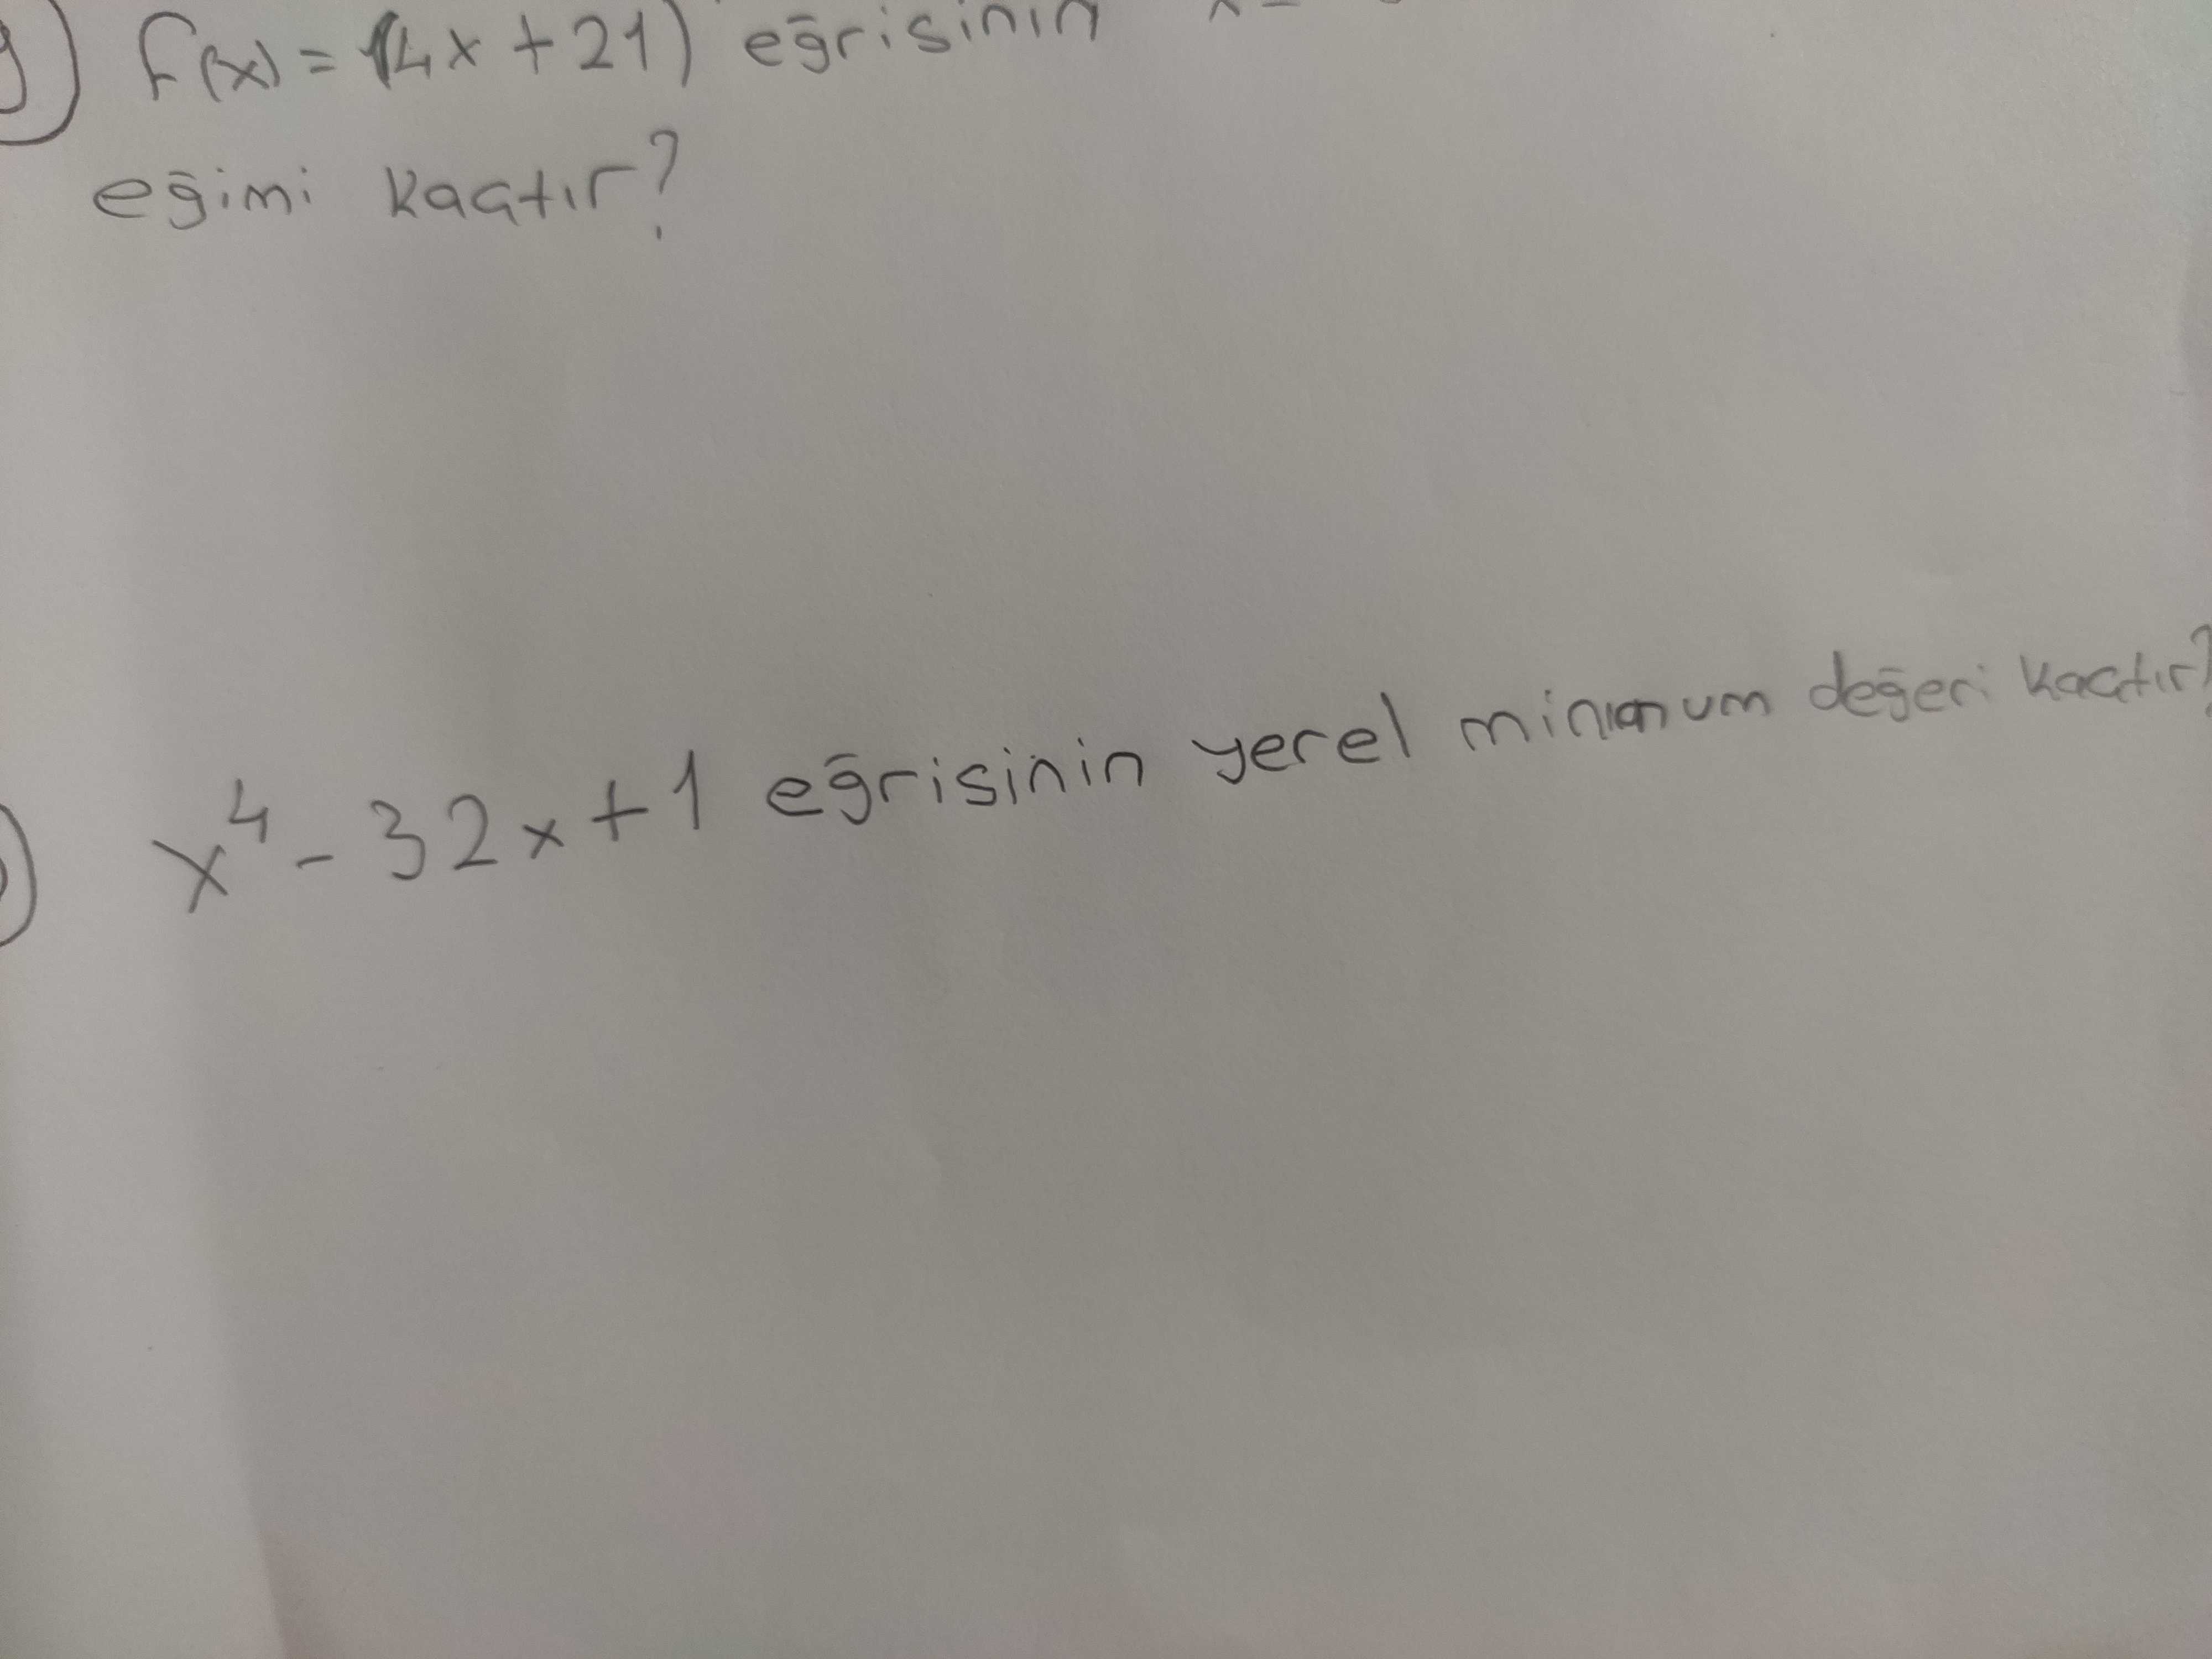 f(x) = (4x + 21) eğrisinin
eğimi kaçtır?
x⁴ - 32x + 1 eğrisinin yerel minimum değeri kaçtır?